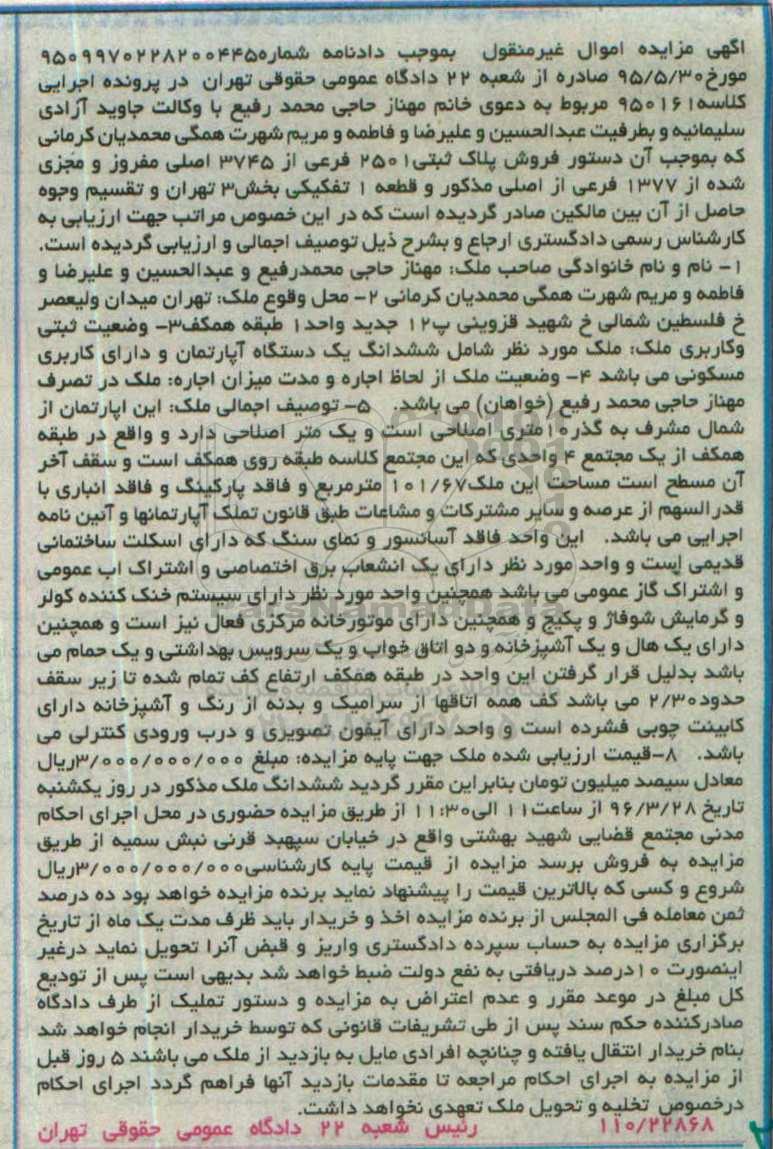 آگهی مزایده اموال غیرمنقول بموجب دادنامه شماره۹۵۰۹۹۷۰۲۲۸۲۰۰۴۴۵
مورخ۹۵/۵/۳۰ صادره از شعبه ۲۲ دادگاه عمومی حقوقی تهران در پرونده اجرایی
کلاسه۹۵۰۱۶۱ مربوط به دعوی خانم مهناز حاجی محمد رفیع با وکالت جاوید آزادی
سلیمانیه و بطرفیت عبدالحسین و علیرضا و فاطمه و مریم شهرت همگی محمدیان کرمانی
که بموجب آن دستور فروش پلاک ثبتی۲۵۰۱ فرعی از ۳۷۴۵ اصلی مفروز و مجزی
شده از ۱۳۷۷ فرعی از اصلی مذکور و قطعه ۱ تفکیکی بخش۳ تهران و تقسیم وجوه
حاصل از آن بین مالکین صادر گردیده است که در این خصوص مراتب جهت ارزیابی به
کارشناس رسمی دادگستری ارجاع و بشرح ذیل توصیف اجمالی و ارزیابی گردیده است.
۱- نام و نام خانوادگی صاحب ملک: مهناز حاجی محمدرفیع و عبدالحسین و علیرضا و
فاطمه و مریم شهرت همگی محمدیان کرمانی ۲- محل وقوع ملک: تهران میدان ولیعصر
خ فلسطین شمالی خ شهید قزوینی پ۱۲ جدید واحد۱ طبقه همکف۳- وضعیت ثبتی
وکاربری ملک: ملک مورد نظر شامل ششدانگ یک دستگاه آپارتمان و دارای کاربری
مسکونی می باشد ۴- وضعیت ملک از لحاظ اجاره و مدت میزان اجاره: ملک در تصرف
مهناز حاجی محمد رفیع (خواهان) می باشد. ۵- توصیف اجمالی ملک: این اپارتمان از
شمال مشرف به گذر۱۰متری اصلاحی است و یک متر اصلاحی دارد و واقع در طبقه
همکف از یک مجتمع ۴ واحدی که این مجتمع کلاسه طبقه روی همکف است و سقف آخر
آن مسطح است مساحت این ملک۱۰۱/۶۷ مترمربع و فاقد پارکینگ و فاقد انباری با
قدرالسهم از عرصه و سایر مشترکات و مشاعات طبق قانون تملک آپارتمانها و آئین نامه
اجرایی می باشد. این واحد فاقد آسانسور و نمای سنگ که دارای اسکلت ساختمانی
قدیمی است و واحد مورد نظر دارای یک انشعاب برق اختصاصی و اشتراک اب عمومی
و اشتراک گاز عمومی می باشد همچنین واحد مورد نظر دارای سیستم خنک کننده کولر
و گرمایش شوفاژ و پکیج و همچنین دارای موتورخانه مرکزی فعال نیز است و همچنین
دارای یک هال و یک آشپزخانه و دو اتاق خواب و یک سرویس بهداشتی و یک حمام می
باشد بدلیل قرار گرفتن این واحد در طبقه همکف ارتفاع کف تمام شده تا زیر سقف
حدود۲/۳۰ می باشد کف همه اتاقها از سرامیک و بدنه از رنگ و آشپزخانه دارای
کابینت چوبی فشرده است و واحد دارای آیفون تصویری و درب ورودی کنترلی می
باشد. ۸-قیمت ارزیابی شده ملک جهت پایه مزایده: مبلغ ۳/۰۰۰/۰۰۰/۰۰۰ریال
معادل سیصد میلیون تومان بنابراین مقرر گردید ششدانگ ملک مذکور در روز یکشنبه
تاریخ ۹۶/۳/۲۸ از ساعت۱۱ الی۱۱:۳۰ از طریق مزایده حضوری در محل اجرای احکام
مدنی مجتمع قضایی شهید بهشتی واقع در خیابان سپهبد قرنی نبش سمیه از طریق
مزایده به فروش برسد مزایده از قیمت پایه کارشناسی۳/۰۰۰/۰۰۰/۰۰۰ریال
شروع و کسی که بالاترین قیمت را پیشنهاد نماید برنده مزایده خواهد بود ده درصد
ثمن معامله فی المجلس از برنده مزایده اخذ و خریدار باید ظرف مدت یک ماه از تاریخ
برگزاری مزایده به حساب سپرده دادگستری واریز و قبض آنرا تحویل نماید درغیر
اینصورت ۱۰درصد دریافتی به نفع دولت ضبط خواهد شد بدیهی است پس از تودیع
کل مبلغ در موعد مقرر و عدم اعتراض به مزایده و دستور تملیک از طرف دادگاه
صادرکننده حکم سند پس از طی تشریفات قانونی که توسط خریدار انجام خواهد شد
بنام خریدار انتقال یافته و چنانچه افرادی مایل به بازدید از ملک می باشند ۵ روز قبل
از مزایده به اجرای احکام مراجعه تا مقدمات بازدید آنها فراهم گردد اجرای احکام
درخصوص تخلیه و تحویل ملک تعهدی نخواهد داشت.
۱۱۰/۲۲۸۶۸ رئیس شعبه ۲۲ دادگاه عمومی حقوقی تهران
ParsNamadData